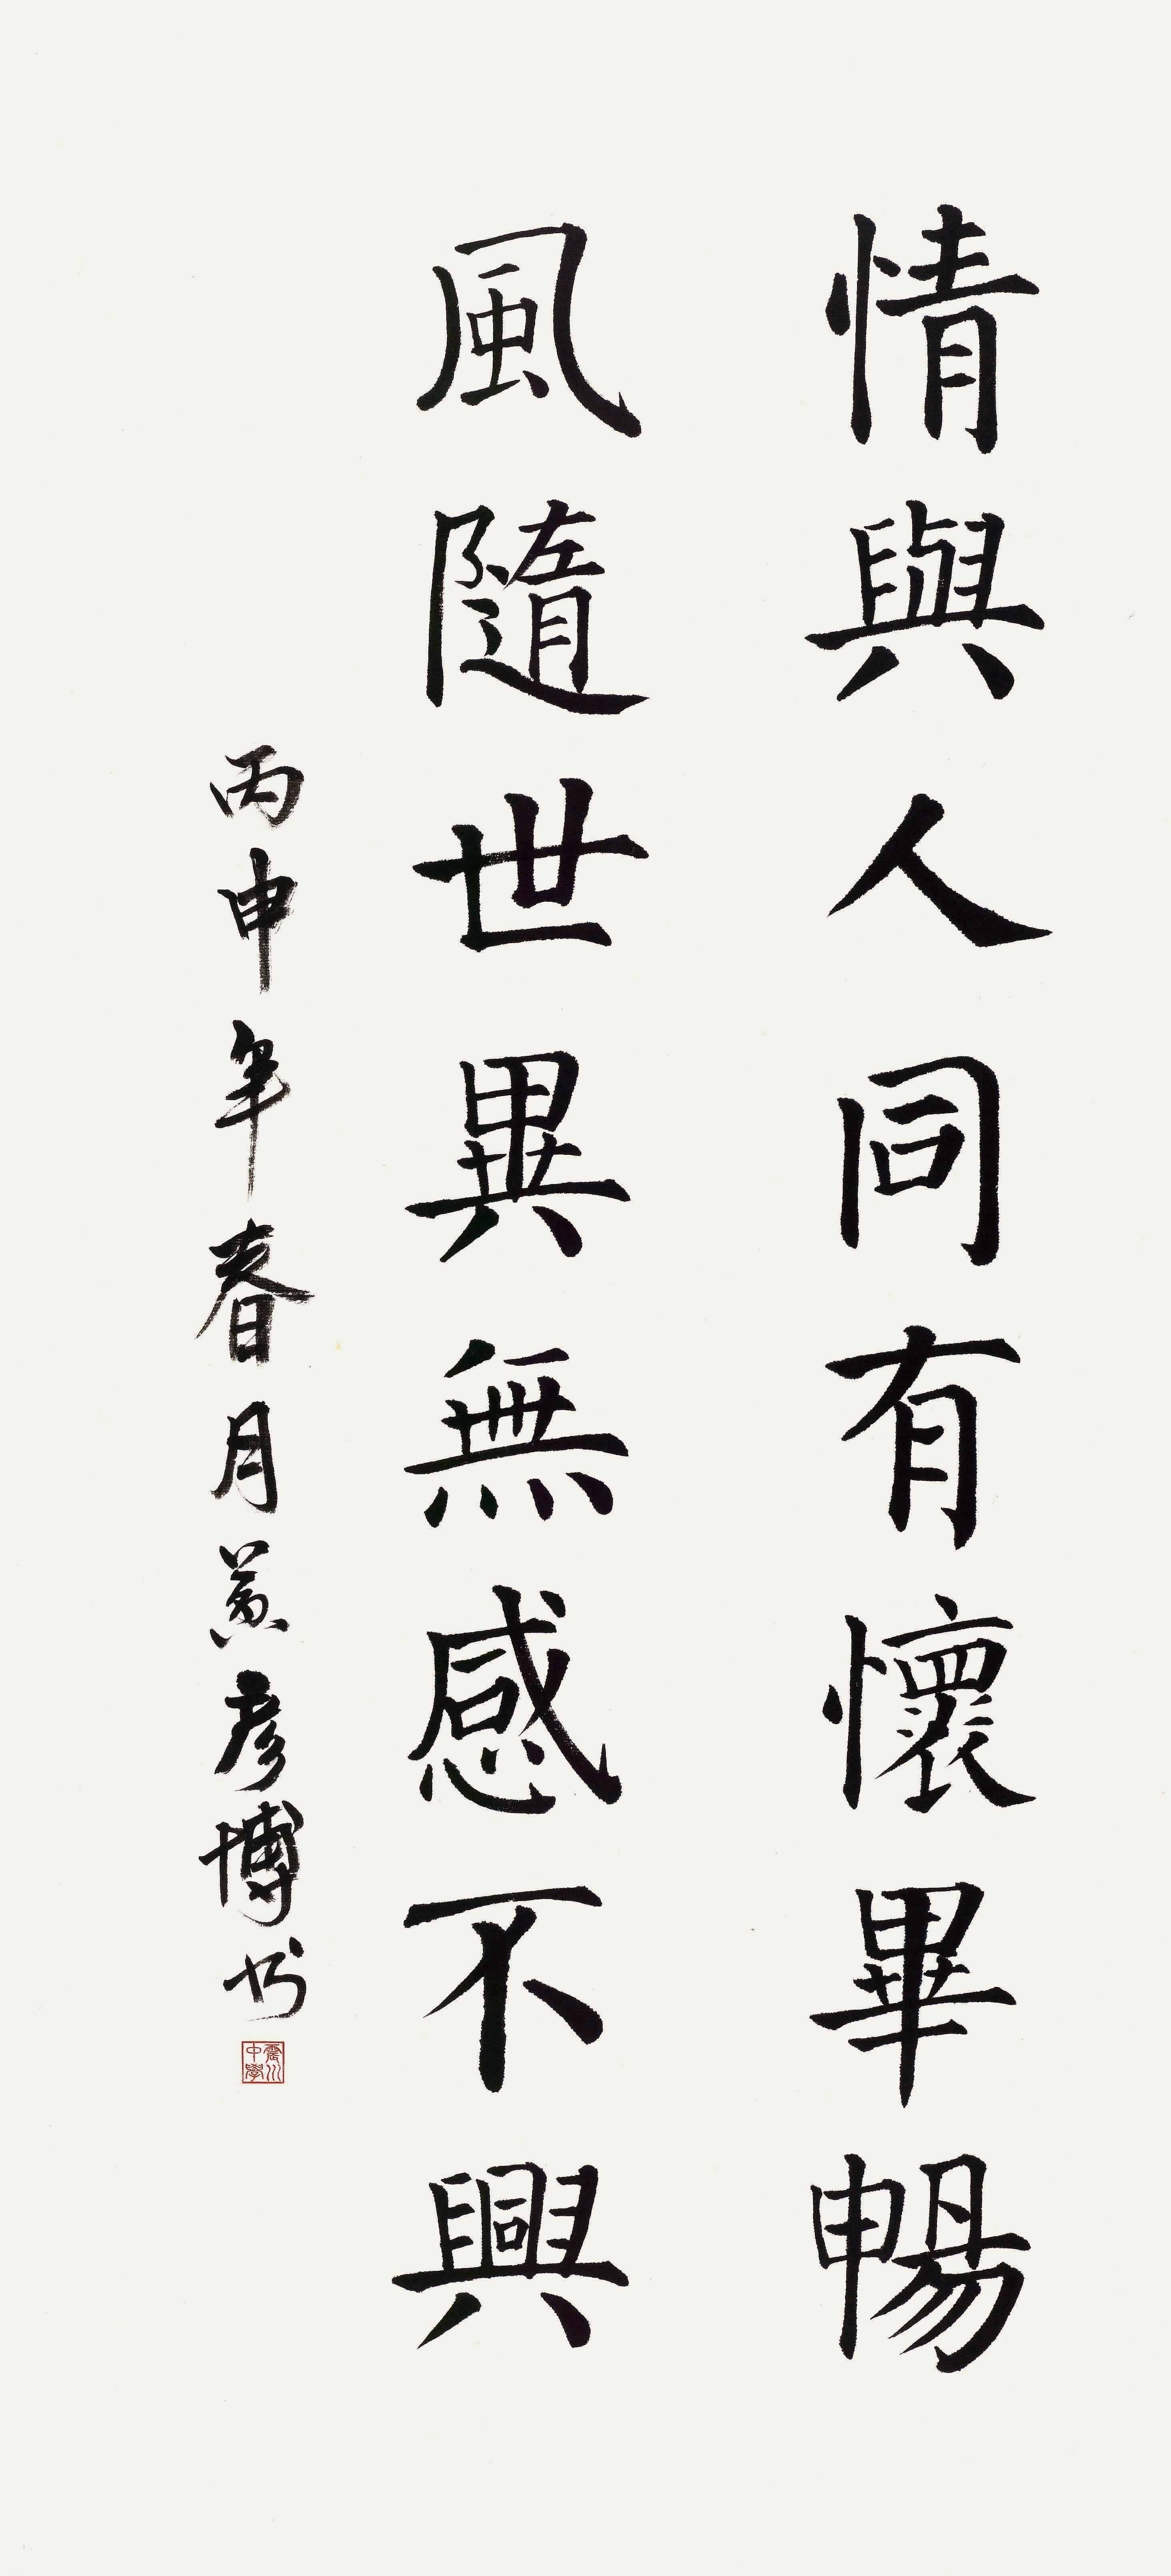 情與人同有懷畢暢
風隨世異無感不興
丙申年春月黃彥博书
震川中學